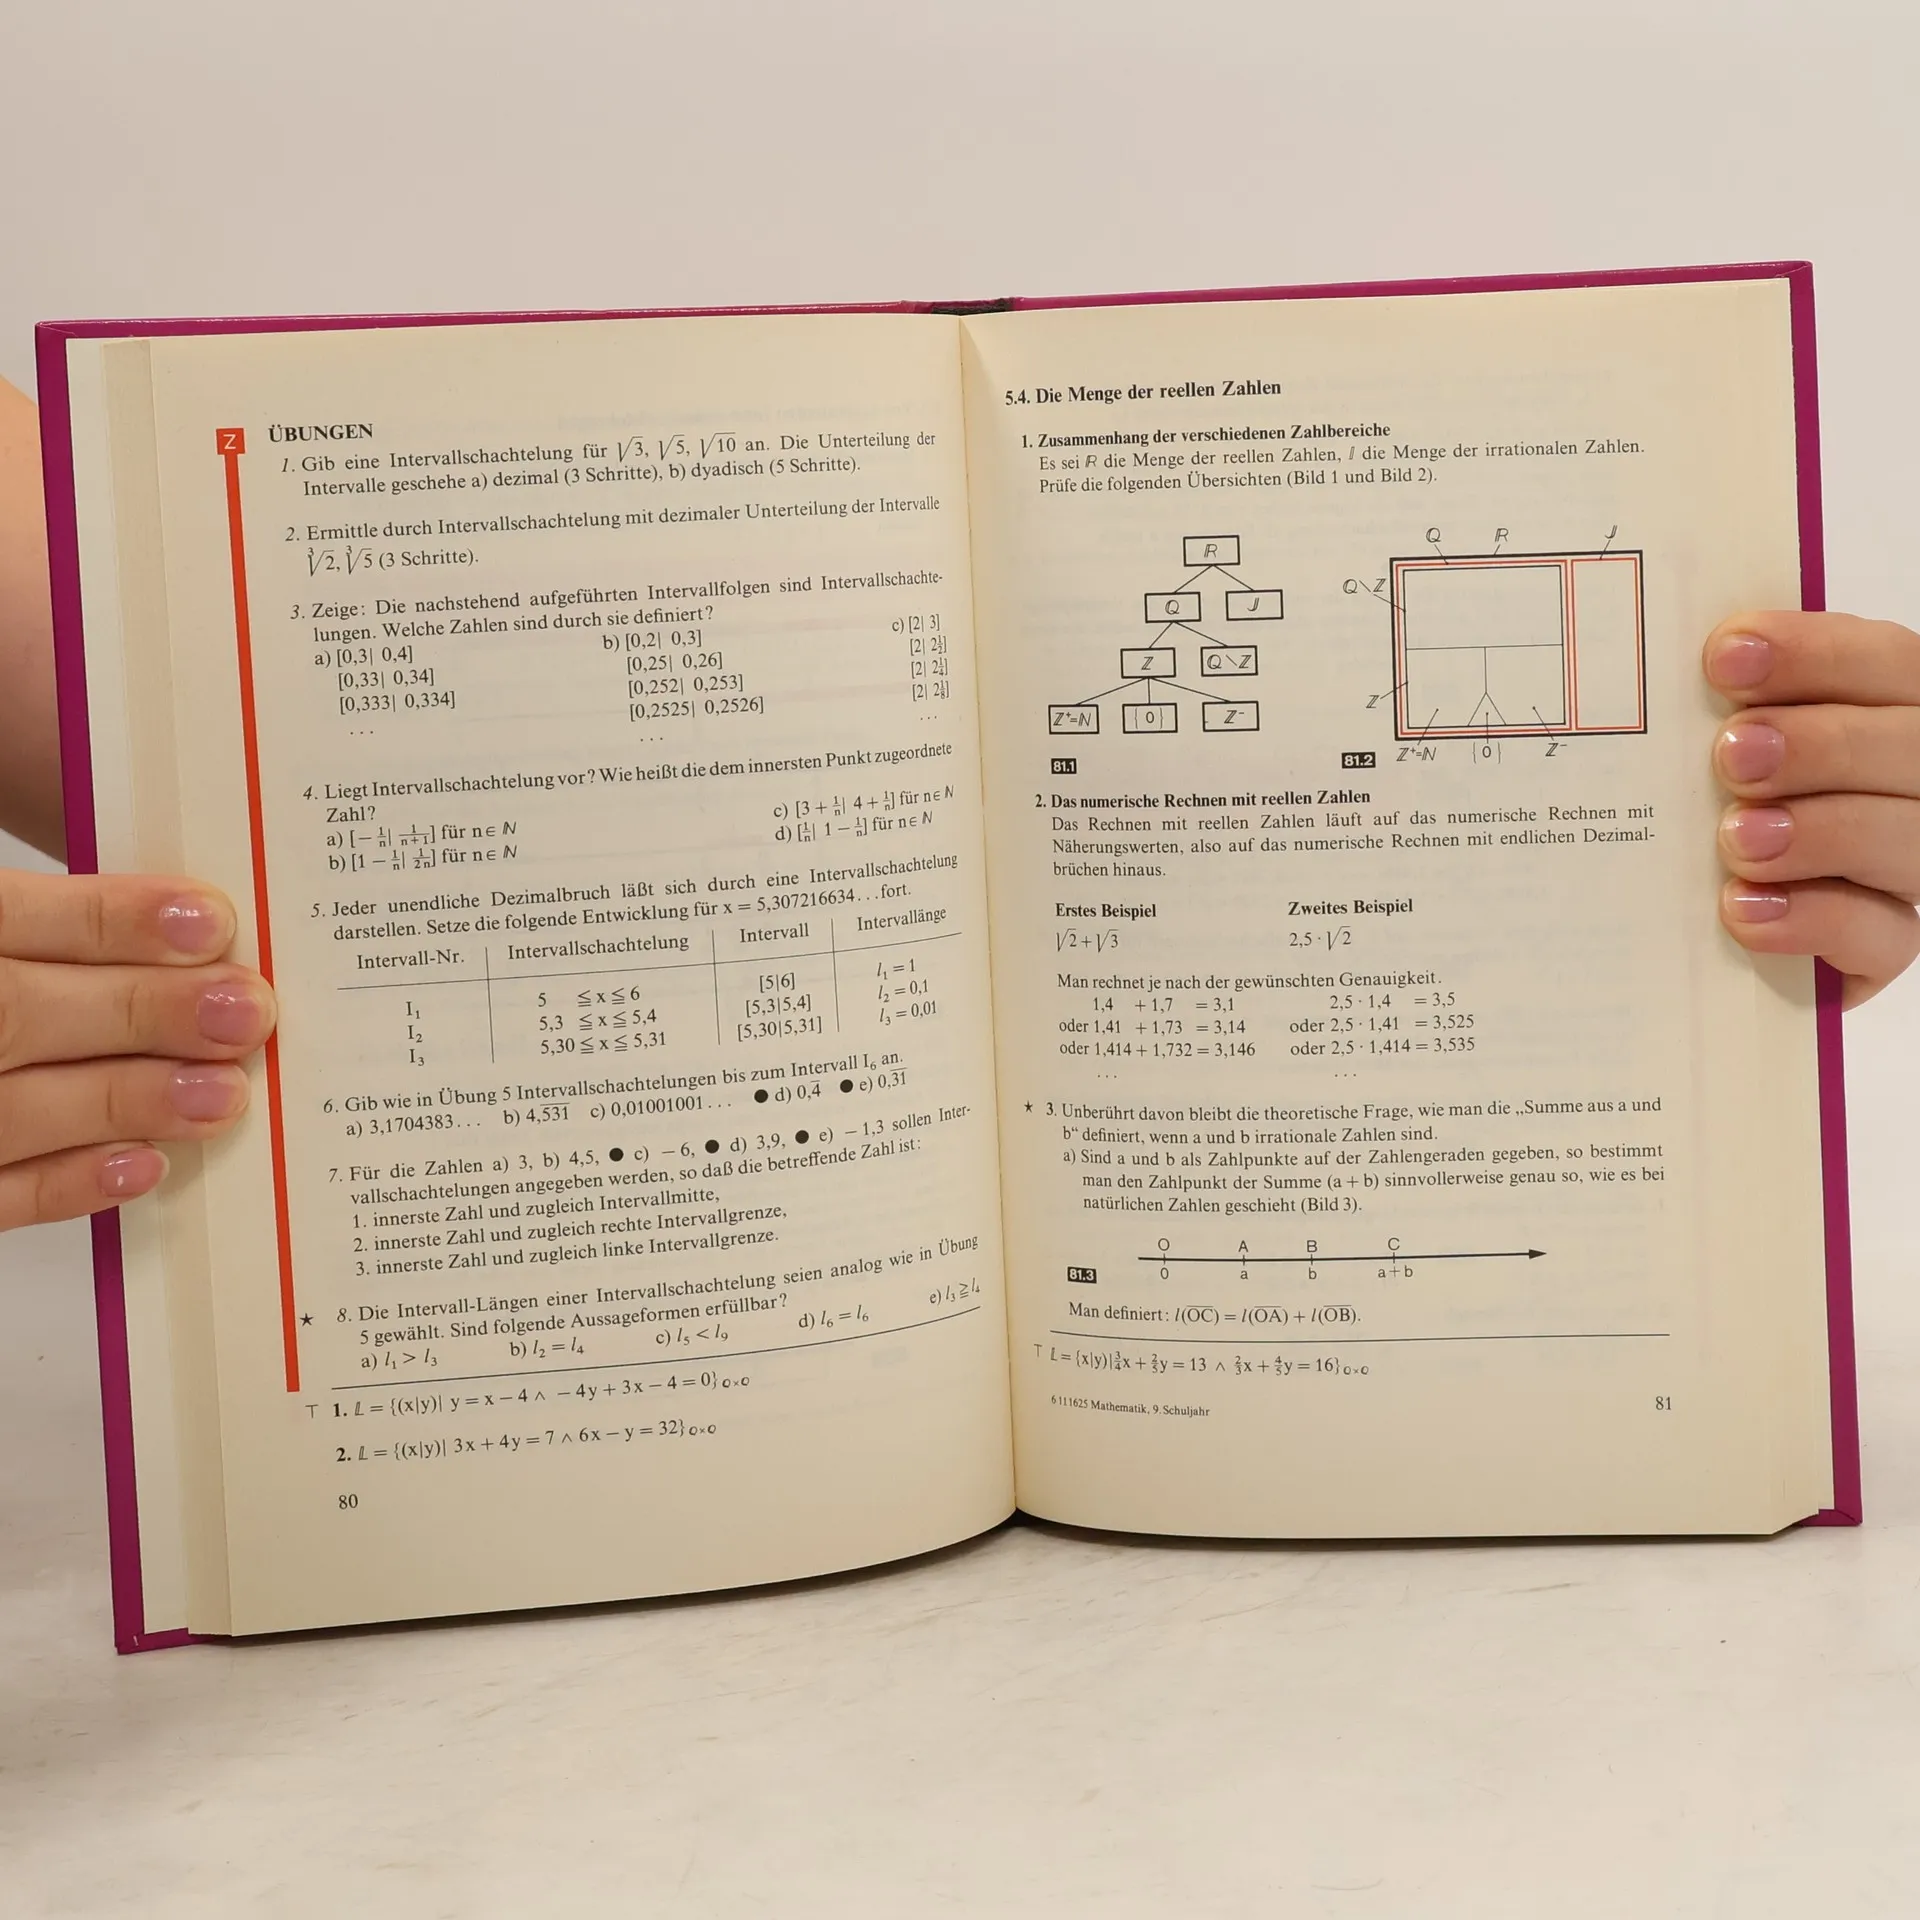 Z
ÜBUNGEN
1. Gib eine Intervallschachtelung für √3, √5, √10 an. Die Unterteilung der
Intervalle geschehe a) dezimal (3 Schritte), b) dyadisch (5 Schritte).
2. Ermittle durch Intervallschachtelung mit dezimaler Unterteilung der Intervalle
∛2, ∛5 (3 Schritte).
3. Zeige: Die nachstehend aufgeführten Intervallfolgen sind Intervallschachte-
lungen. Welche Zahlen sind durch sie definiert?
a) [0,3| 0,4] b) [0,2| 0,3] c) [2| 3]
[0,33| 0,34] [0,25| 0,26] [2| 2½]
[0,333| 0,334] [0,252| 0,253] [2| 2¼]
... [0,2525| 0,2526] [2| 2⅛]
... ...
4. Liegt Intervallschachtelung vor? Wie heißt die dem innersten Punkt zugeordnete
Zahl?
a) [− 1/n | 1/(n+1)] für n ∈ ℕ c) [3 + 1/n | 4 + 1/n] für n ∈ ℕ
b) [1 − 1/n | 1/2n] für n ∈ ℕ d) [1/n | 1 − 1/n] für n ∈ ℕ
5. Jeder unendliche Dezimalbruch läßt sich durch eine Intervallschachtelung
darstellen. Setze die folgende Entwicklung für x = 5,307216634...fort.
Intervall-Nr. Intervallschachtelung Intervall Intervallänge
I₁ 5 ≦ x ≦ 6 [5|6] l₁ = 1
I₂ 5,3 ≦ x ≦ 5,4 [5,3|5,4] l₂ = 0,1
I₃ 5,30 ≦ x ≦ 5,31 [5,30|5,31] l₃ = 0,01
6. Gib wie in Übung 5 Intervallschachtelungen bis zum Intervall I₆ an.
a) 3,1704383... b) 4,5̅3̅1̅ c) 0,01001001... ● d) 0,4̅ ● e) 0,3̅1̅
7. Für die Zahlen a) 3, b) 4,5, ● c) − 6, ● d) 3,9, ● e) − 1,3 sollen Inter-
vallschachtelungen angegeben werden, so daß die betreffende Zahl ist:
1. innerste Zahl und zugleich Intervallmitte,
2. innerste Zahl und zugleich rechte Intervallgrenze,
3. innerste Zahl und zugleich linke Intervallgrenze.
★ 8. Die Intervall-Längen einer Intervallschachtelung seien analog wie in Übung
5 gewählt. Sind folgende Aussageformen erfüllbar?
a) l₁ > l₃ b) l₂ = l₄ c) l₅ < l₉ d) l₆ = l₆ e) l₃ ≧ l₄
T 1. 𝕃 = {(x|y)| y = x − 4 ∧ − 4y + 3x − 4 = 0} ℚ×ℚ
2. 𝕃 = {(x|y)| 3x + 4y = 7 ∧ 6x − y = 32} ℚ×ℚ
80
5.4. Die Menge der reellen Zahlen
1. Zusammenhang der verschiedenen Zahlbereiche
Es sei ℝ die Menge der reellen Zahlen, 𝕀 die Menge der irrationalen Zahlen.
Prüfe die folgenden Übersichten (Bild 1 und Bild 2).
ℝ
ℚ 𝕁
ℤ ℚ\ℤ
ℤ⁺=ℕ {0} ℤ⁻
81.1
ℚ ℝ 𝕁
ℚ\ℤ
ℤ
ℤ⁺=ℕ {0} ℤ⁻
81.2
2. Das numerische Rechnen mit reellen Zahlen
Das Rechnen mit reellen Zahlen läuft auf das numerische Rechnen mit
Näherungswerten, also auf das numerische Rechnen mit endlichen Dezimal-
brüchen hinaus.
Erstes Beispiel Zweites Beispiel
√2 + √3 2,5 · √2
Man rechnet je nach der gewünschten Genauigkeit.
1,4 + 1,7 = 3,1 2,5 · 1,4 = 3,5
oder 1,41 + 1,73 = 3,14 oder 2,5 · 1,41 = 3,525
oder 1,414 + 1,732 = 3,146 oder 2,5 · 1,414 = 3,535
... ...
★ 3. Unberührt davon bleibt die theoretische Frage, wie man die „Summe aus a und
b“ definiert, wenn a und b irrationale Zahlen sind.
a) Sind a und b als Zahlpunkte auf der Zahlengeraden gegeben, so bestimmt
man den Zahlpunkt der Summe (a + b) sinnvollerweise genau so, wie es bei
natürlichen Zahlen geschieht (Bild 3).
O A B C
0 a b a+b
81.3
Man definiert: l(O̅C̅) = l(O̅A̅) + l(O̅B̅).
T 𝕃 = {x|y)|¾x + ⅖y = 13 ∧ ⅔x + ⅘y = 16} ℚ×ℚ
6 111625 Mathematik, 9. Schuljahr
81